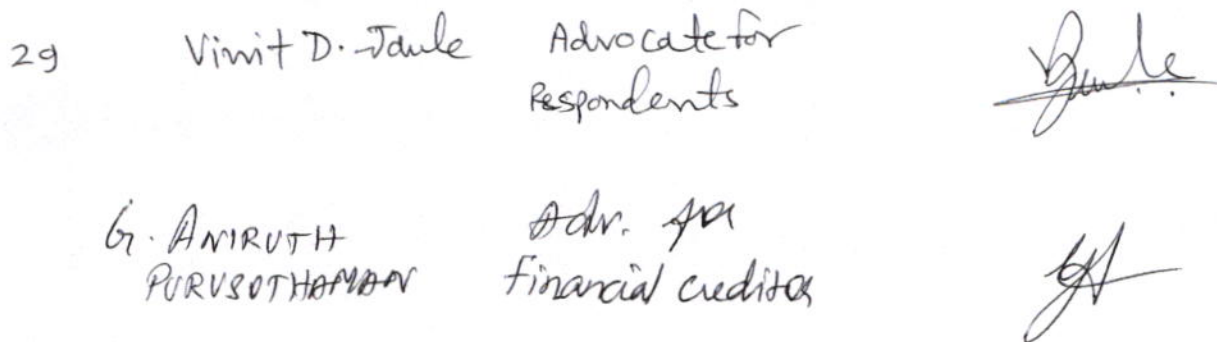 29 Vinit D. Jaule Advocate for
Respondents
G. ANIRUTH Adv. for
PURUSOTHAMAN financial creditor